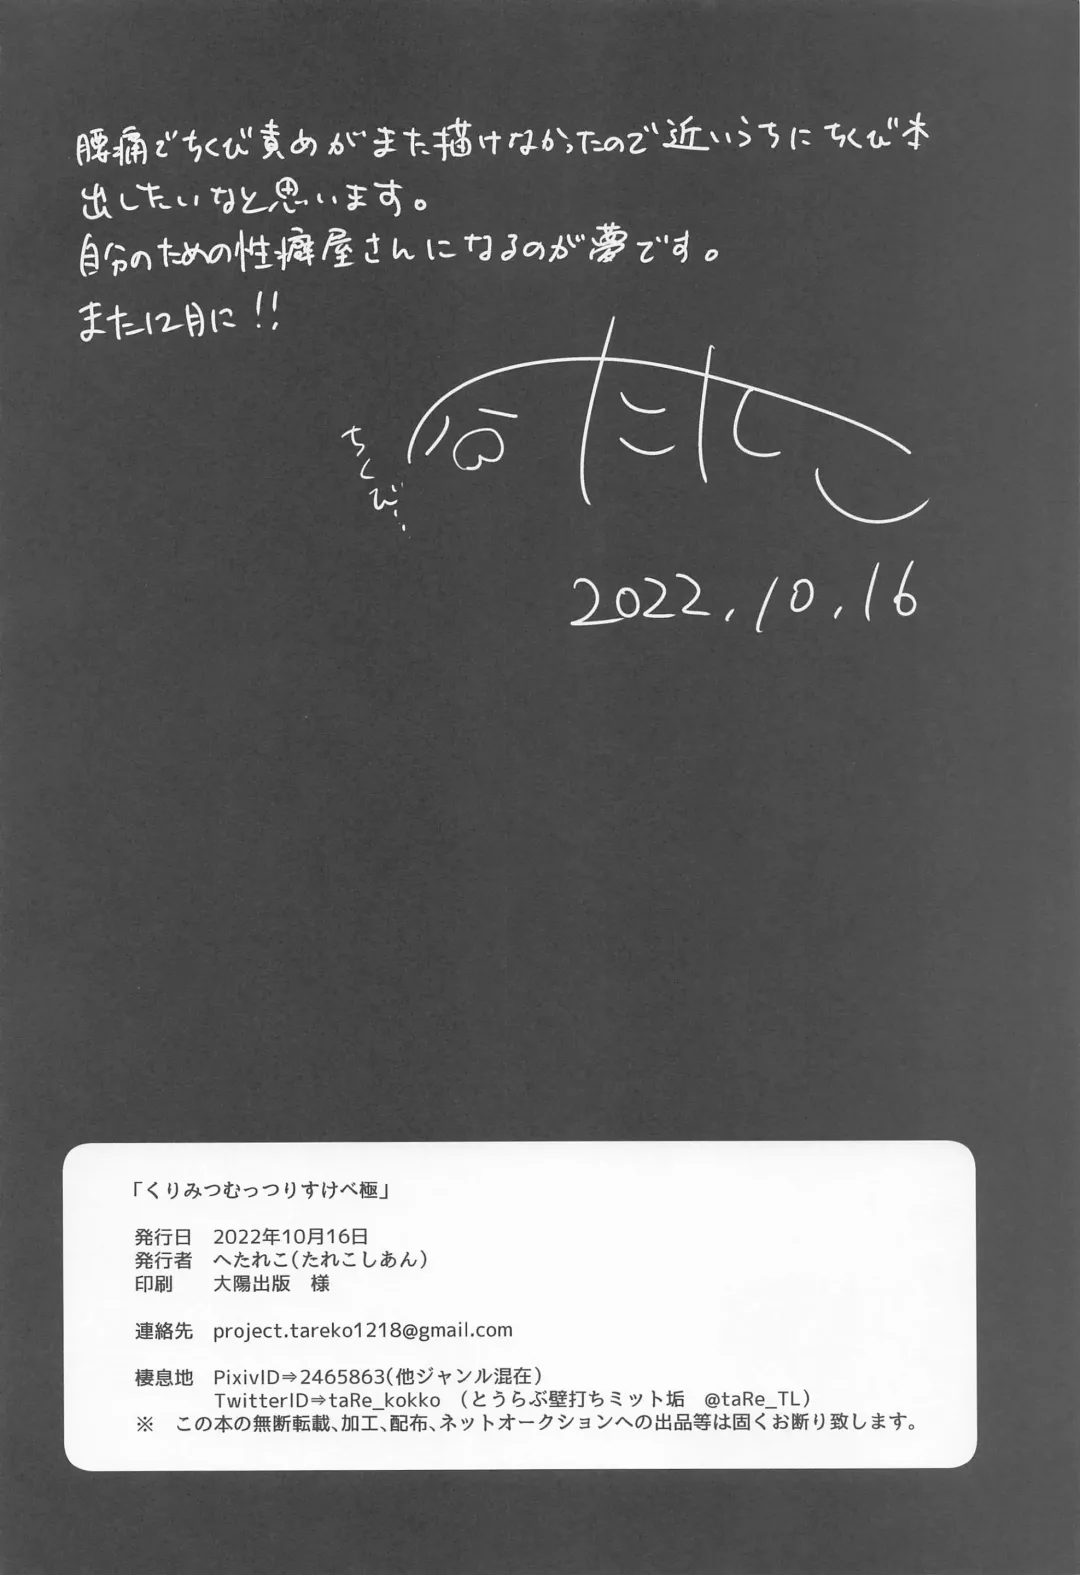 腰痛でちくび責めがまた描けなかったので近いうちにちくび本
出したいなと思います。
自分のための性癖屋さんになるのが夢です。
また12月に!!
ちくび…
へたれこ
2022.10.16
「くりみつむっつりすけべ極」
発行日 2022年10月16日
発行者 へたれこ(たれこしあん)
印刷 大陽出版 様
連絡先 project.tareko1218@gmail.com
棲息地 PixivID⇒2465863(他ジャンル混在)
TwitterID⇒taRe_kokko (とうらぶ壁打ちミット垢 @taRe_TL)
※ この本の無断転載、加工、配布、ネットオークションへの出品等は固くお断り致します。